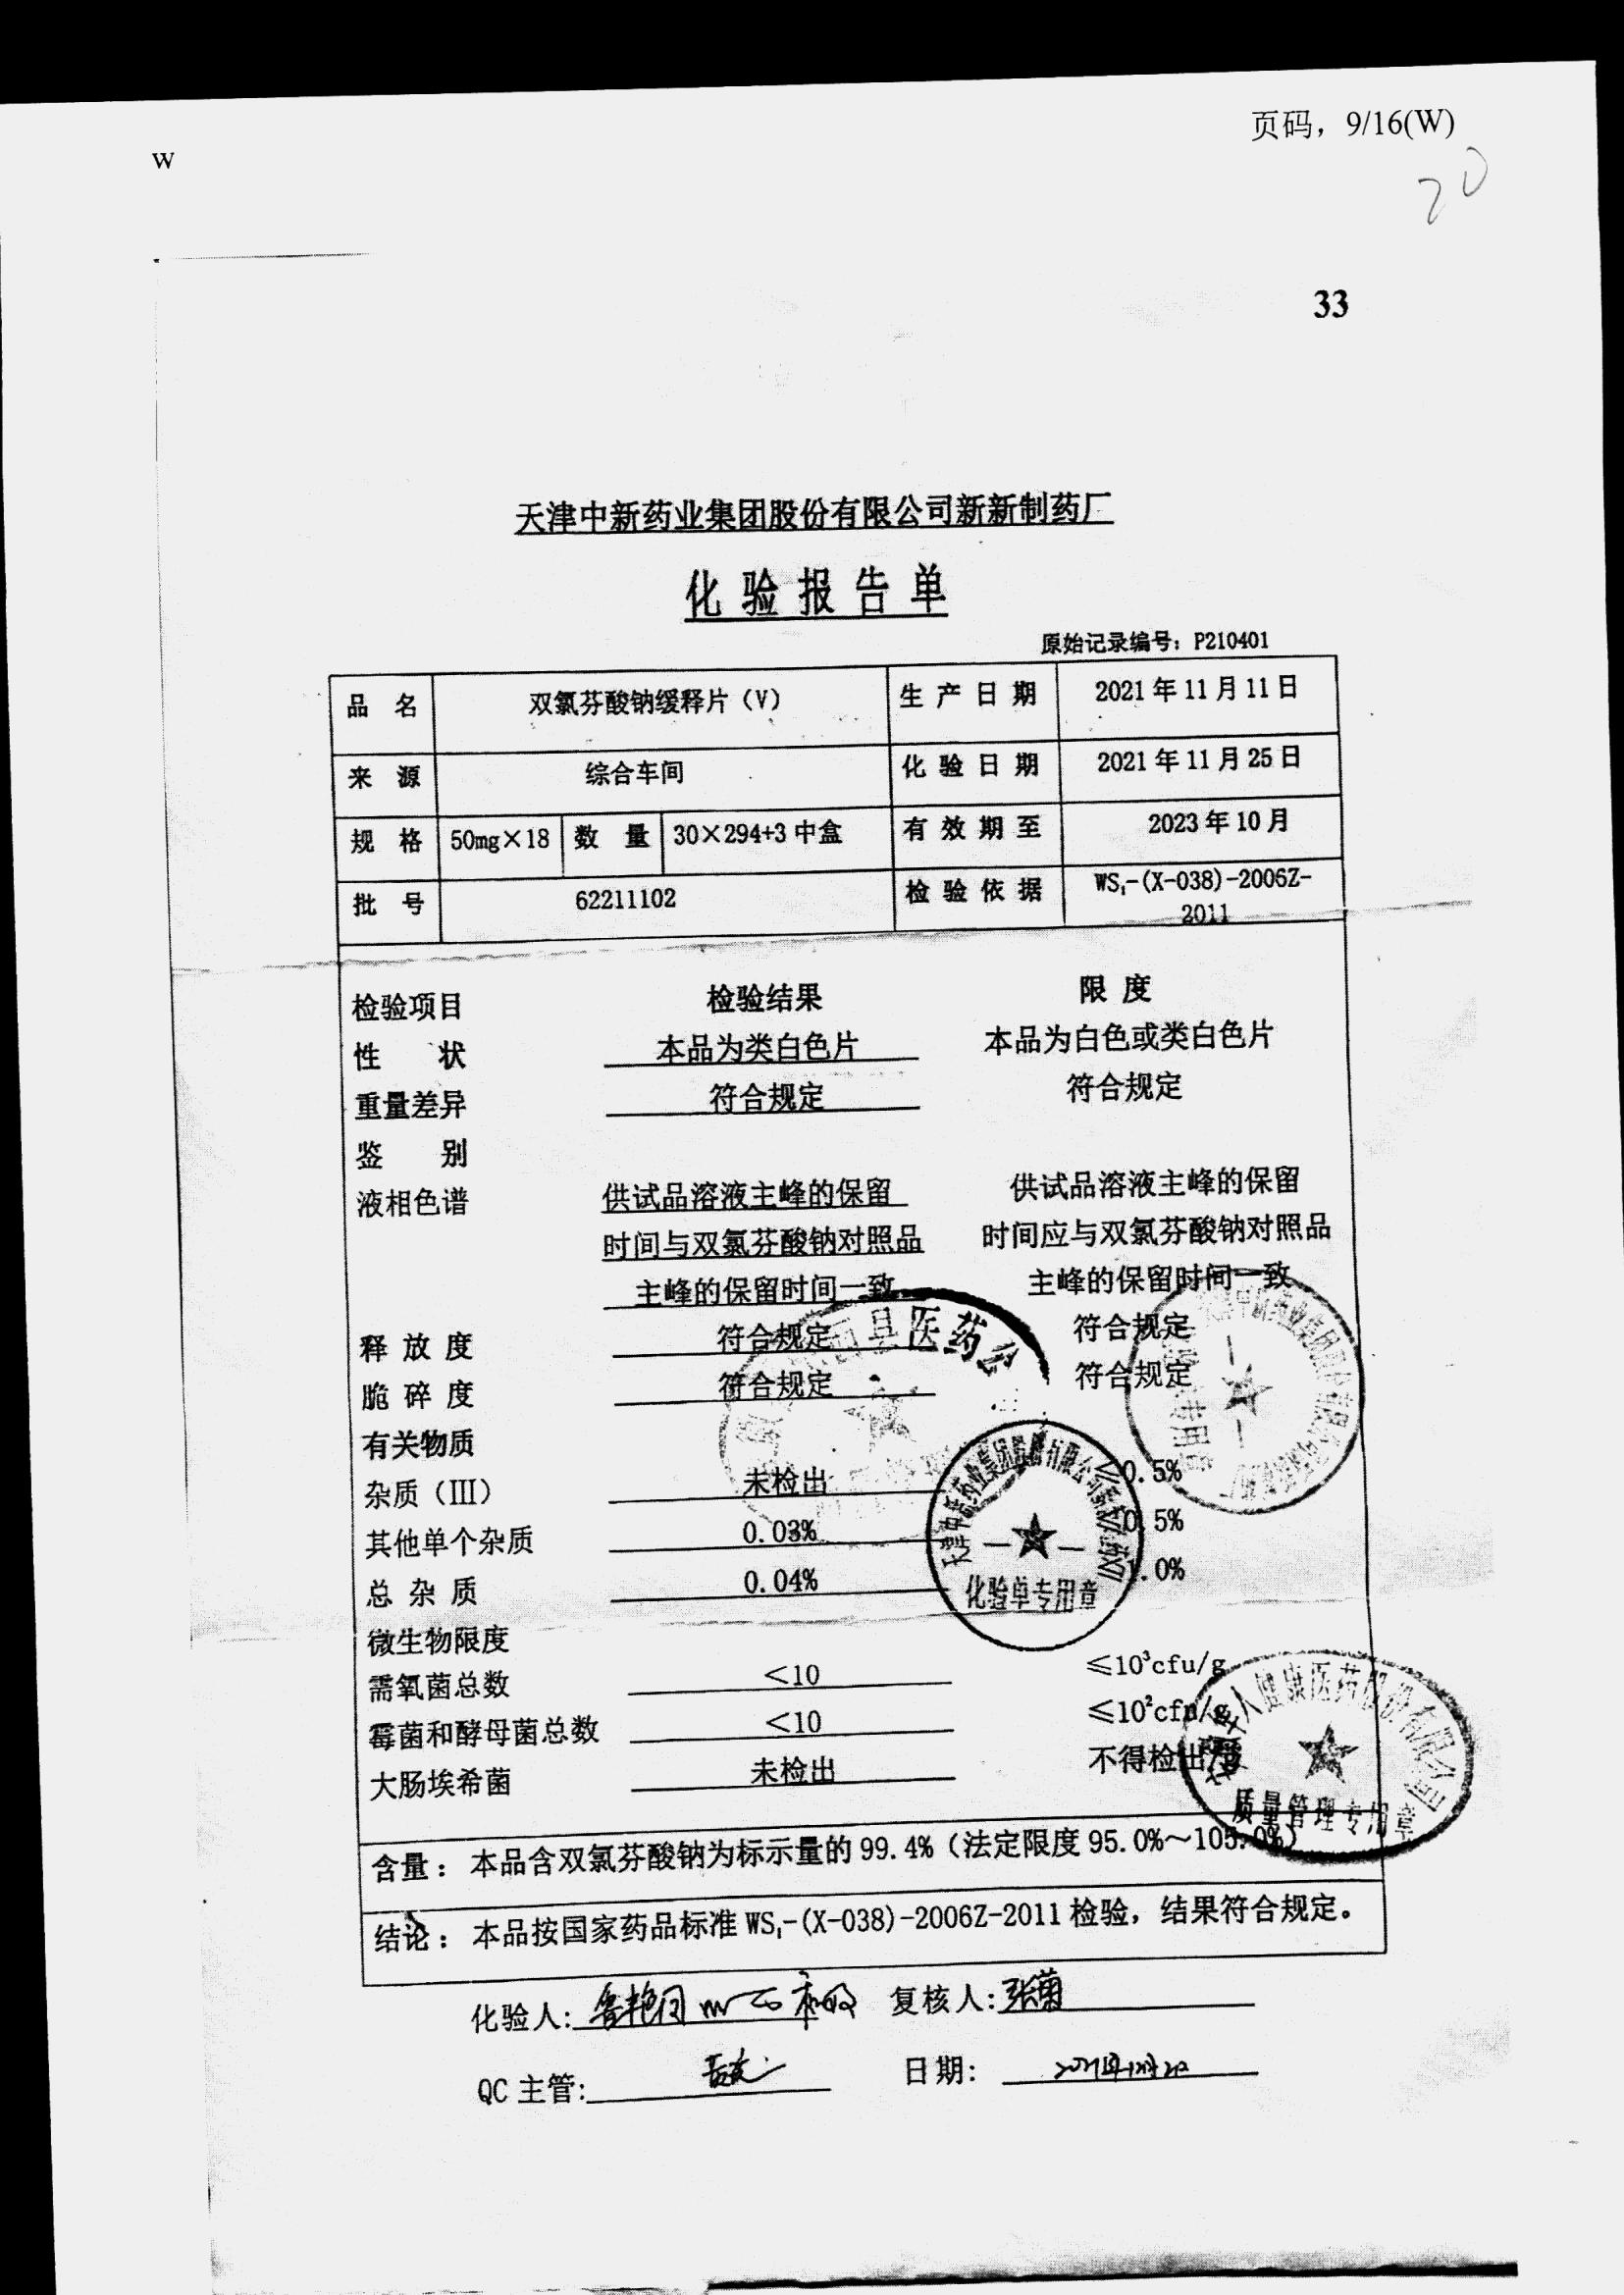 页码，9/16(W)
w
20
33
天津中新药业集团股份有限公司新新制药厂
化验报告单
原始记录编号：P210401
品 名 双氯芬酸钠缓释片（V） 生产日期 2021年11月11日
来 源 综合车间 化验日期 2021年11月25日
规 格 50mg×18 数 量 30×294+3中盒 有效期至 2023年10月
批 号 62211102 检验依据 WS₁-(X-038)-2006Z-
2011
检验项目 检验结果 限 度
性 状 本品为类白色片 本品为白色或类白色片
重量差异 符合规定 符合规定
鉴 别
液相色谱 供试品溶液主峰的保留 供试品溶液主峰的保留
时间与双氯芬酸钠对照品 时间应与双氯芬酸钠对照品
主峰的保留时间一致 主峰的保留时间一致
释 放 度 符合规定 符合规定
脆 碎 度 符合规定 符合规定
有关物质
杂质（III） 未检出 0.5%
其他单个杂质 0.03% 0.5%
总 杂 质 0.04% .0%
化验单专用章
微生物限度
需氧菌总数 <10 ≤10³cfu/g
霉菌和酵母菌总数 <10 ≤10²cfu/g
大肠埃希菌 未检出 不得检出
健康医药股份有限公司
质量管理专用章
含量： 本品含双氯芬酸钠为标示量的99.4%（法定限度95.0%～105.0%）
结论： 本品按国家药品标准WS₁-(X-038)-2006Z-2011检验，结果符合规定。
化验人: 复核人: 张菊
QC主管: 日期: